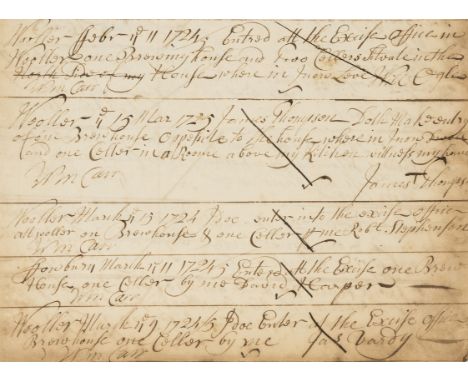 Wooller Febr yᵉ 11 1724/5 Entred att the Excise office in
Wooller one Brewing house and two Cellers Situate in the
North Side of my House where in I now Live Wᵐ Ogle
Wm Carr
Wooller yᵉ 15 Mar 1725 James Thompson Doth Make entry
of one Brewhouse oposite to the house where in I now
and one Celler in a Roome above my Kitchen witness my hand
Wm Carr
James Thompson
Wooller March yᵉ 15 1724 I Doe enter into the excise office
att woller on Brewhouse & one Celler # me Robt Stephenson
Wm Carr
March yᵉ 11 1724/5 Entered att the Excise one Brew
House one Celler by me David Cooper
Wm Carr
Wooller March yᵉ 9 1724/5 I Doe Enter at the Excise office
Brewhouse one Celler by me Ja: Vardy
Wm Carr